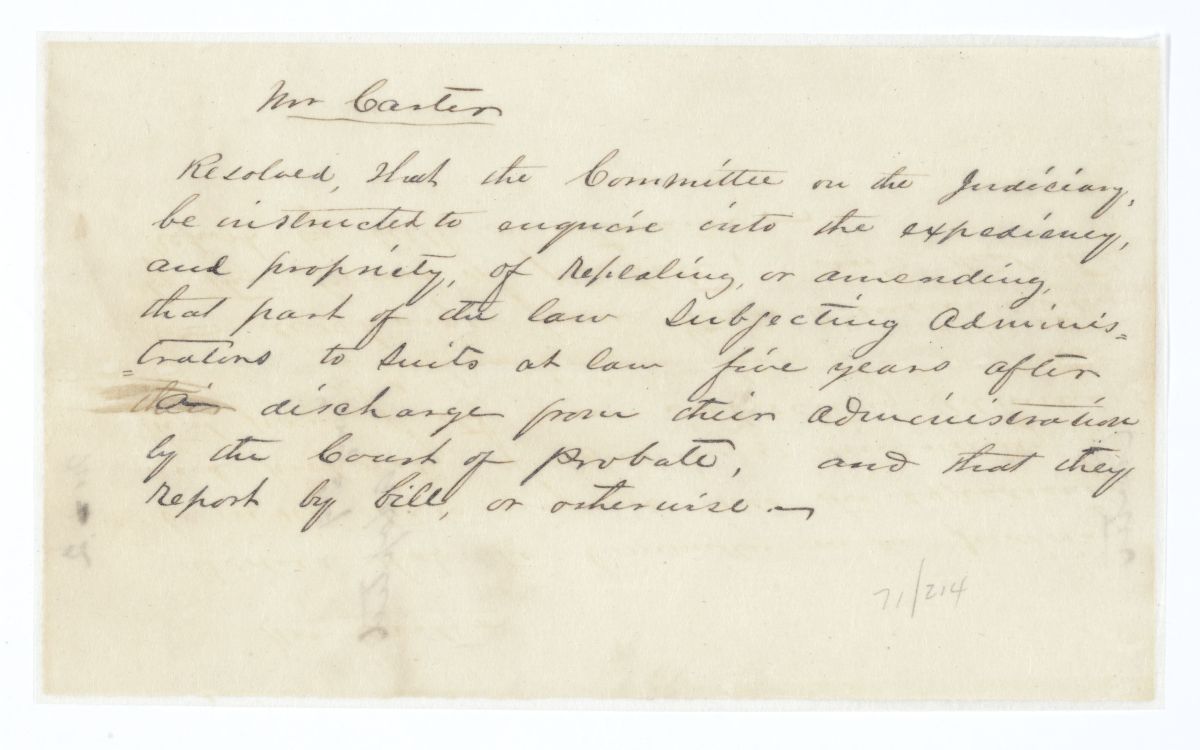 Mr Carter
Resolved, that the Committee on the Judiciary,
be instructed to enquire into the expediency,
and propriety, of repealing, or amending,
that part of the law Subjecting Adminis=
=trators to suits at law five years after
discharge from their administration
by the Court of Probate, and that they
report by bill, or otherwise —
71/214